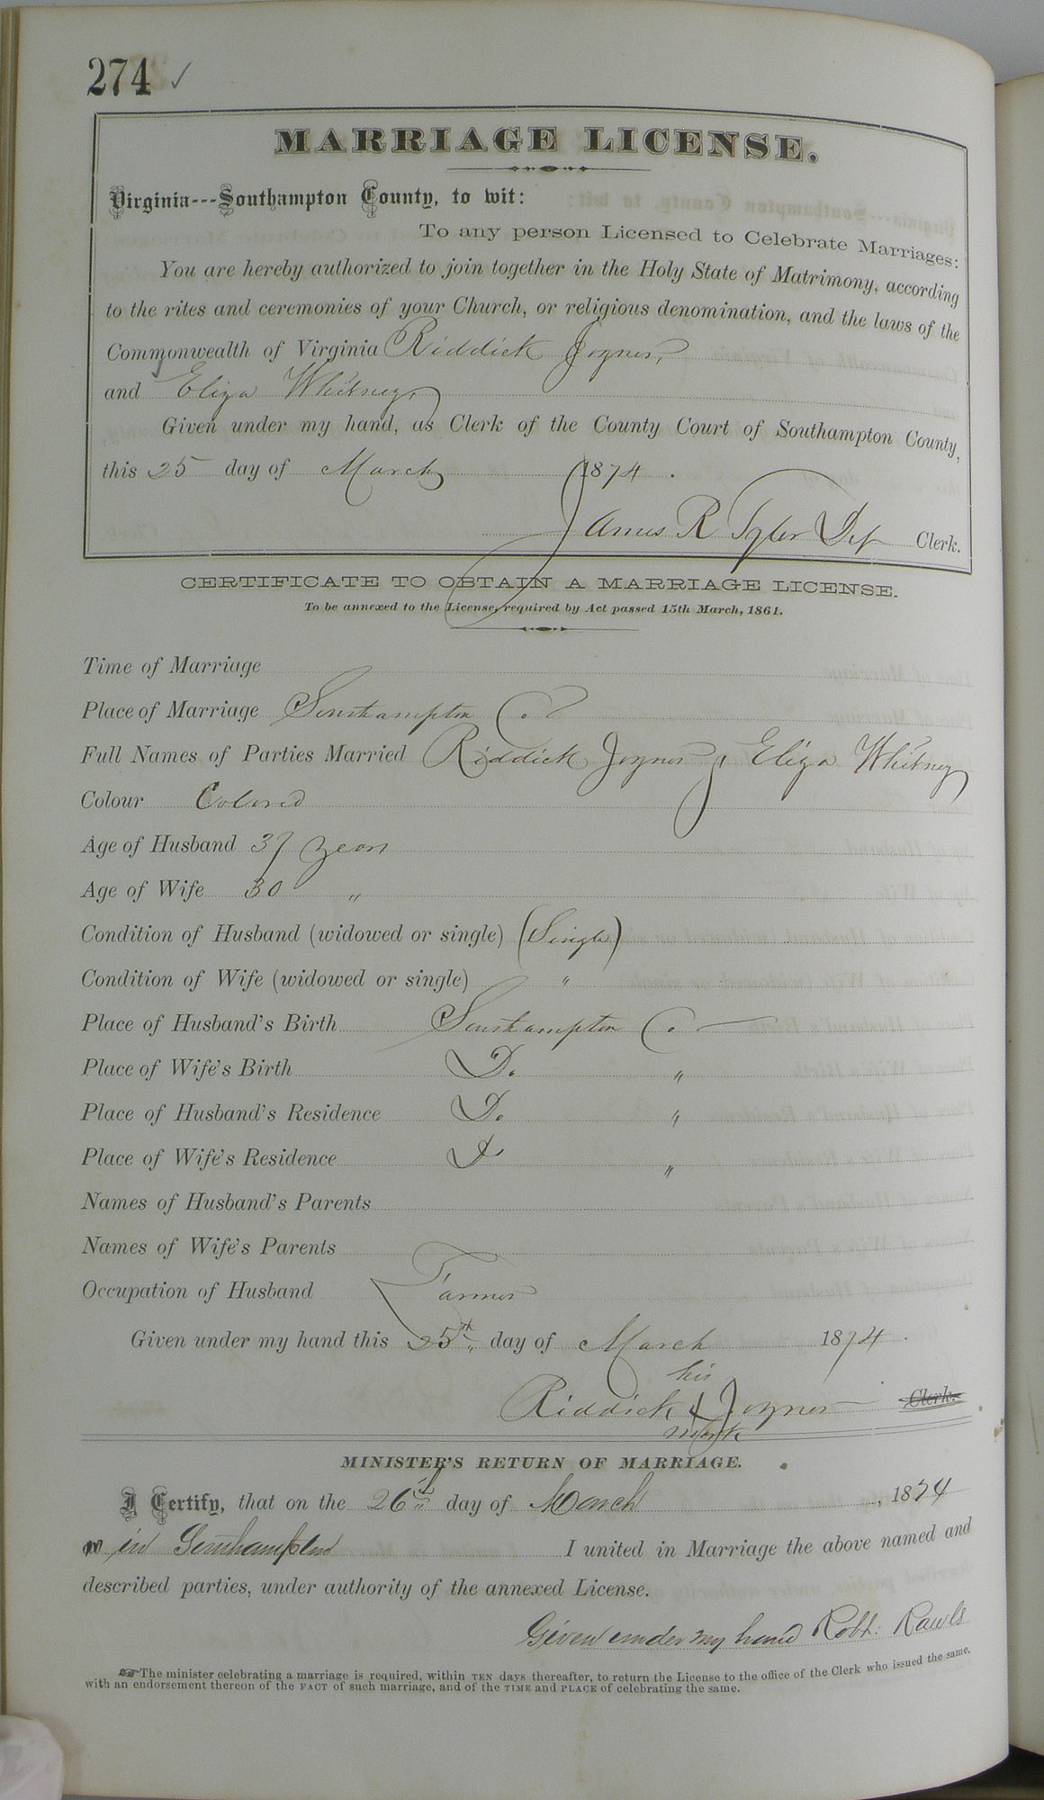 274 ✓
MARRIAGE LICENSE.
Virginia---Southampton County, to wit:
To any person Licensed to Celebrate Marriages:
You are hereby authorized to join together in the Holy State of Matrimony, according
to the rites and ceremonies of your Church, or religious denomination, and the laws of the
Commonwealth of Virginia Riddick Joyner,
and Eliza Whitney,
Given under my hand, as Clerk of the County Court of Southampton County,
this 25 day of March 1874.
James R Tyler Dep Clerk.
CERTIFICATE TO OBTAIN A MARRIAGE LICENSE.
To be annexed to the License, required by Act passed 15th March, 1861.
Time of Marriage
Place of Marriage Southampton Co
Full Names of Parties Married Riddick Joyner, Eliza Whitney
Colour Colored
Age of Husband 37 years
Age of Wife 30 "
Condition of Husband (widowed or single) (Single)
Condition of Wife (widowed or single) "
Place of Husband's Birth Southampton Co
Place of Wife's Birth Do "
Place of Husband's Residence Do "
Place of Wife's Residence Do "
Names of Husband's Parents
Names of Wife's Parents
Occupation of Husband Farmer
Given under my hand this 25th day of March 1874.
his
Riddick X Joyner Clerk.
mark
MINISTER'S RETURN OF MARRIAGE.
I Certify, that on the 26th day of March, 1874
in Southampton I united in Marriage the above named and
described parties, under authority of the annexed License.
Given under my hand Robt. Rawls
☞The minister celebrating a marriage is required, within TEN days thereafter, to return the License to the office of the Clerk who issued the same,
with an endorsement thereon of the FACT of such marriage, and of the TIME and PLACE of celebrating the same.